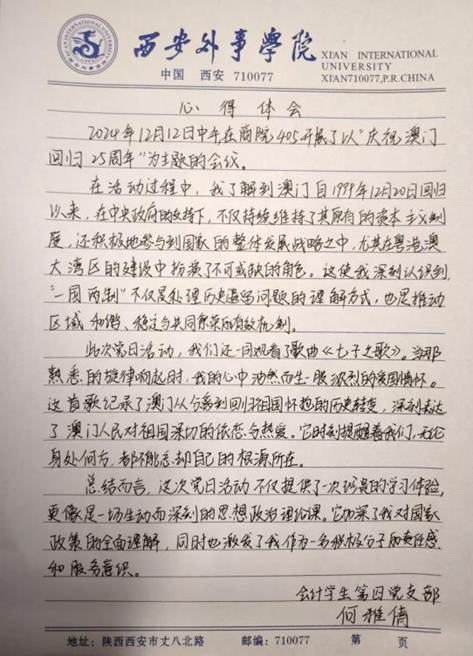 西安外事學院
XIAN INTERNATIONAL
UNIVERSITY
中国 西安 710077
XIAN710077,P.R.CHINA
心得体会
2024年12月12日中午,在商院405开展了以"庆祝澳门
回归25周年"为主题的会议。
在活动过程中,我了解到澳门自1999年12月20日回归
以来,在中央政府的支持下,不仅持续维持了其原有的资本主义制
度,还积极地参与到国家的整体发展战略之中,尤其在粤港澳
大湾区的建设中扮演了不可或缺的角色。这使我深刻认识到,
"一国两制"不仅是处理历史遗留问题的理解方式,也是推动
区域和谐、稳定与共同繁荣的有效机制。
此次党日活动,我们还一同观看了歌曲《七子之歌》。当那
熟悉的旋律响起时,我的心中油然而生一股浓烈的爱国情怀。
这首歌纪录了澳门从分离到回归祖国怀抱的历史转变,深刻表达
了澳门人民对祖国深切的依恋与热爱。它时刻提醒着我们,无论
身处何方,都不能忘却自己的根源所在。
总结而言,这次党日活动不仅提供了一次珍贵的学习体验,
更像是一场生动而深刻的思想政治理论课。它加深了我对国家
政策的全面理解,同时也激发了我作为一名积极分子的责任感
和服务意识。
会计学生第四党支部
何雅倩
地址:陕西西安市丈八北路 邮编:710077 第 页